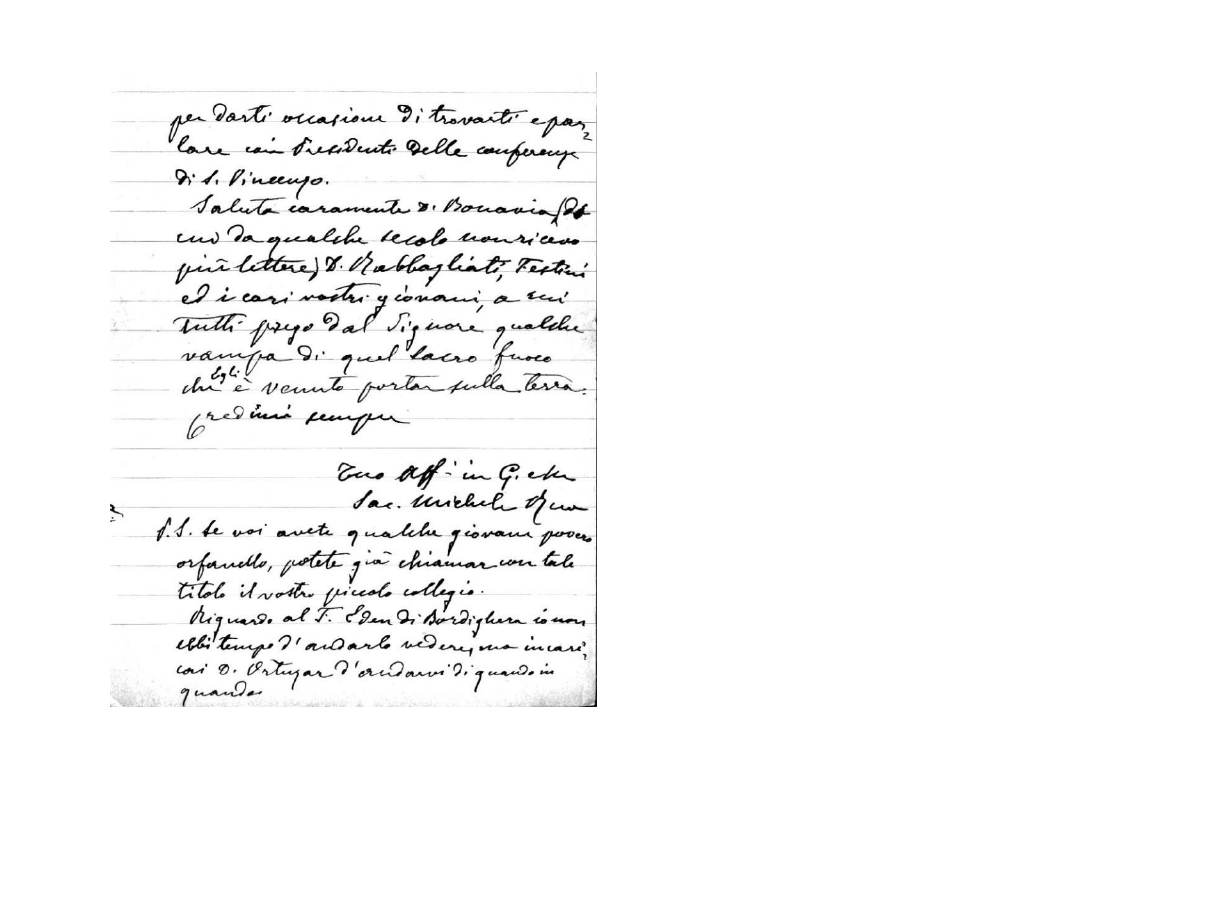 per darti occasione di trovarti e par-
lare coi Presidenti delle conferenze
di S. Vincenzo.
Saluta caramente D. Bonavia (da
cui da qualche secolo non ricevo
più lettere) D. Rabbagliati, Festini
ed i cari vostri giovani, a cui
tutti prego dal Signore qualche
vampa di quel sacro fuoco
che Egli è venuto portar sulla terra.
Credimi sempre
Tuo Aff.. in G. e M.
Sac. Michele Rua
P.S. Se voi avete qualche giovane povero
orfanello, potete già chiamar con tale
titolo il vostro piccolo collegio.
Riguardo al T. Eden di Bordighera io non
ebbi tempo d'andarlo vedere, ma incari-
cai D. Ortuzar d'andarvi di quando in
quando.